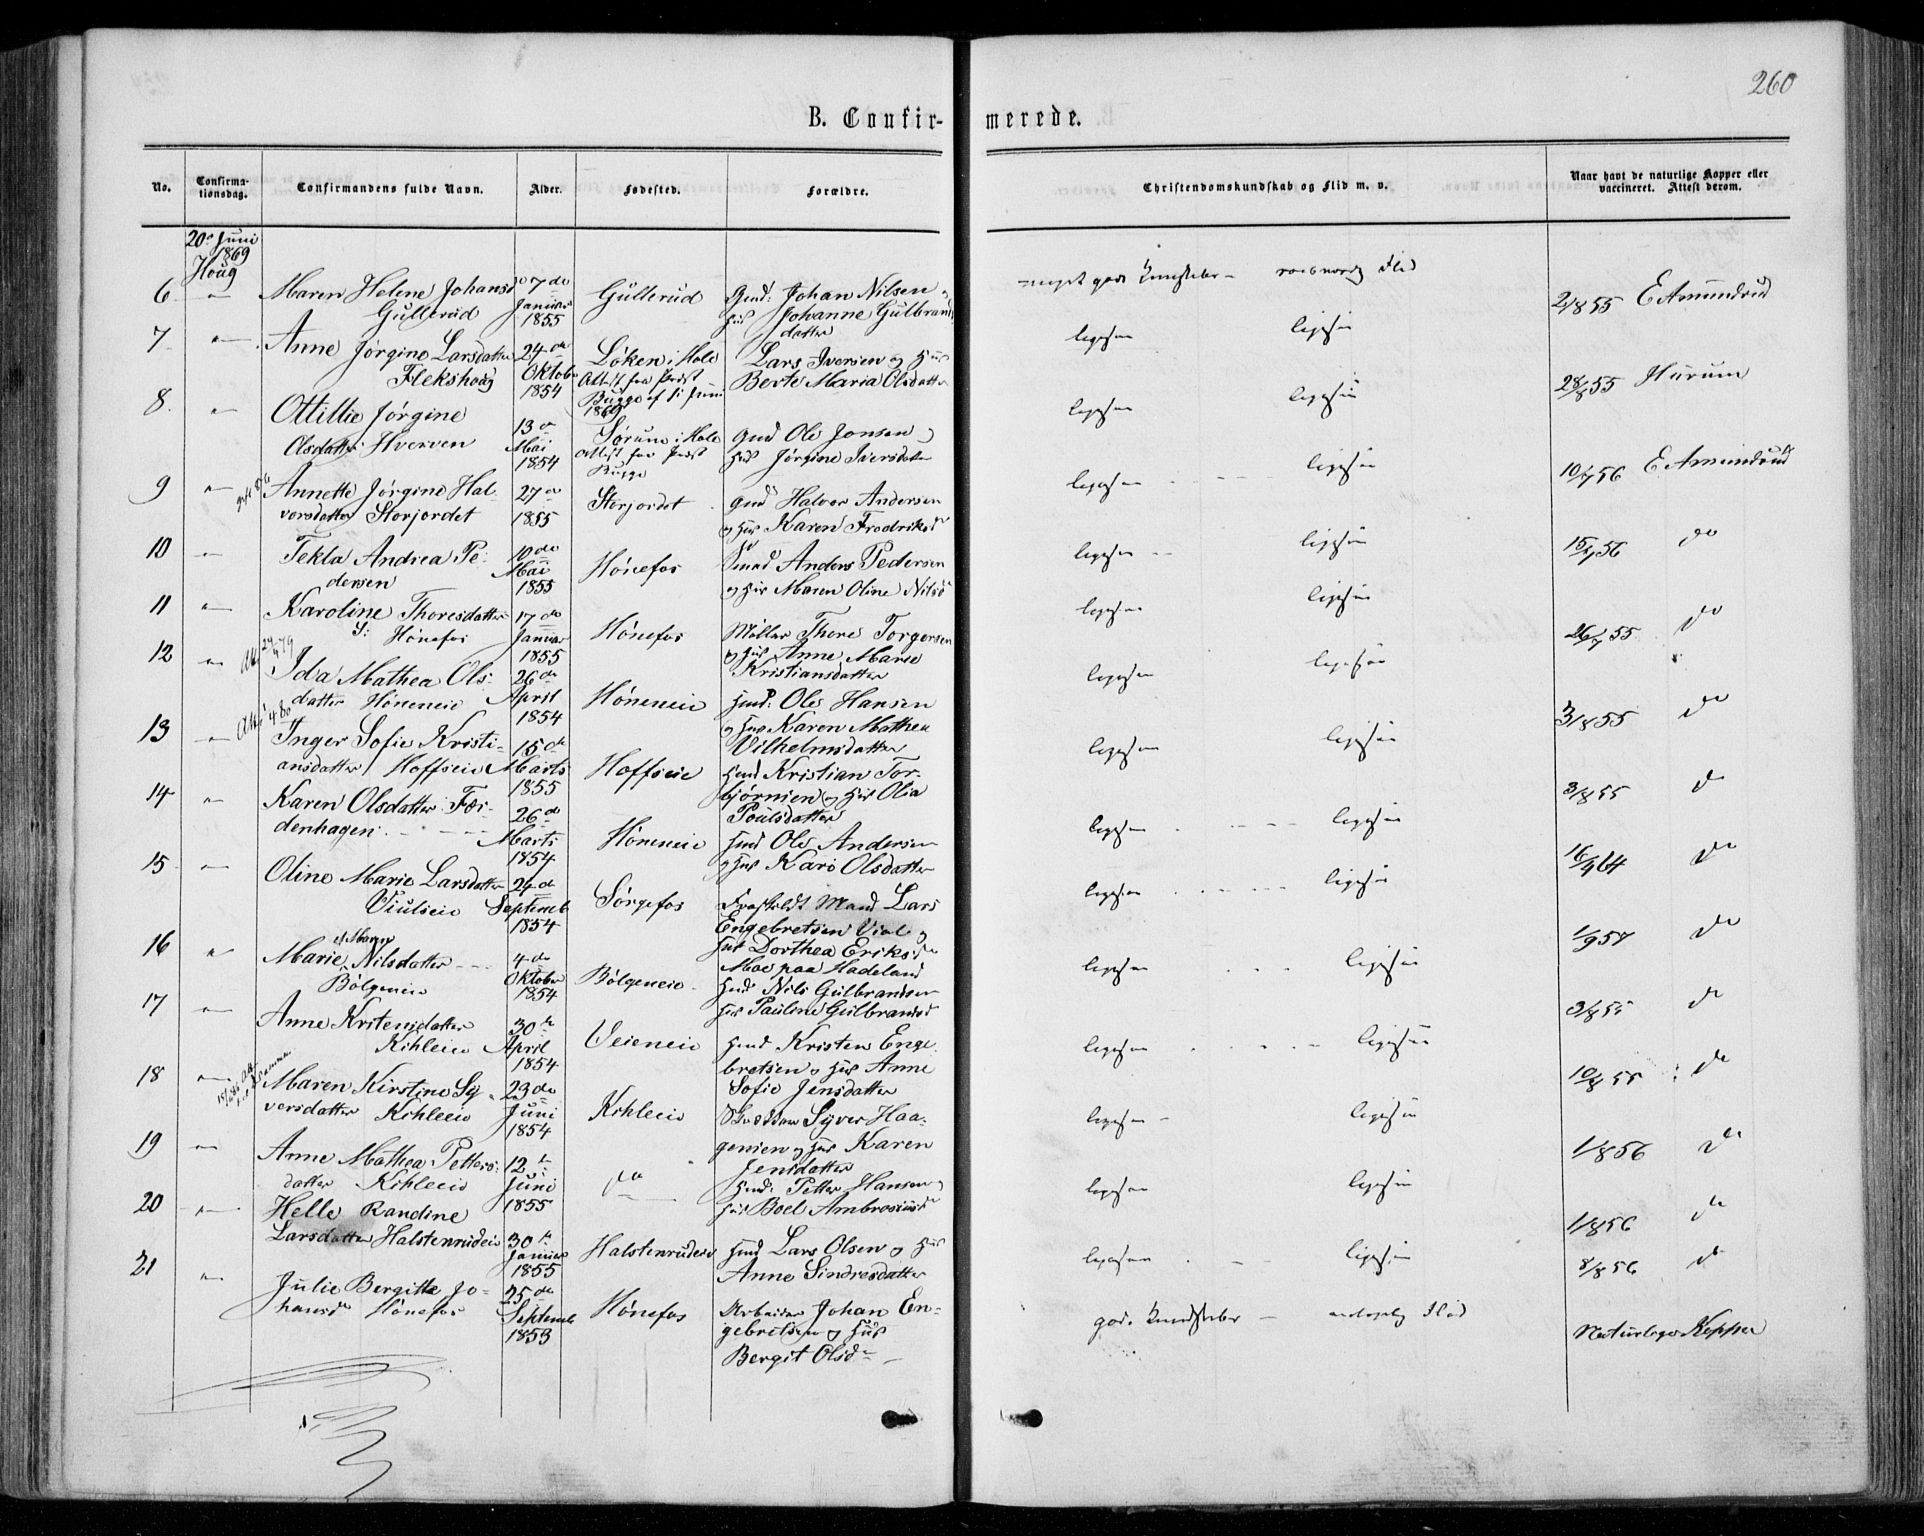 260
B. Confir-
merede.
No. Confirma-tionsdag. Confirmandens fulde Navn. Alder. Fødested. Forældre. Christendomskundskab og Flid m. v. Naar havt de naturlige Kopper eller vaccineret. Attest derom.
20de Juni
1869
Houg
6 " Maren Helene Johansd Gullerud 7de Januar 1855 Gullerud Gmd: Johan Nilsen og Hus Johanne Gulbrandsdatter meget gode Kundskaber - Flid 2/8 55 E Amundrud
7 " Anne Jørgine Larsdatter Flekshoug 24de Oktober 1854 Løken i Hole Attest fra Præst Bugge af Juni 1869 Lars Iversen og Hus Berte Maria Olsdatter ligesaa ligesaa 28/8 55 Hurum
8. " Ottillie Jørgine Olsdatter Hverven 13de Mai 1854 Sørum i Hole Attest fra Præst Bugge Gmd Ole Jonsen og Hus Jørgine Iversdatter ligesaa ligesaa 10/7 56 E Amundrud
9 " Annette Jørgine Halvorsdatter Storjordet 27de 1855 Storjordet Gmd Halvor Andersen og Hus Karen Fredriksd ligesaa ligesaa 15/7 56 do
10 " Tekla Andrea Pedersen 10de Mai 1855 Hønefos Smed Anders Pedersen og Hus Maren Oline Nilsd ligesaa ligesaa 26/7 55 do
11 " Karoline Thoresdatter S: Hønefos 17de Januar 1855 Hønefos Møller Thore Torgersen og Hus Anne Marie Kristiansdatter ligesaa ligesaa 3/8 55 do
12 " Ida Mathea Olsdatter Høneneie 26de April 1854 Høneneie Hmd: Ole Hansen og Hus Karen Mathea Vilhelmsdatter ligesaa ligesaa 3/8 55 do
13 " Inger Sofie Kristiansdatter Hoffseie 15de Marts 1855 Hoffseie Hmd Kristian Torbjørnsen og Hus Olia Poulsdatter ligesaa ligesaa
14 " Karen Olsdatter Færdenhagen 26de Marts 1854 Høneneie Hmd Ole Andersen og Hus Kari Olsdatter ligesaa ligesaa 16/4 64 do
15 " Oline Marie Larsdatter Viulseie 24de Septemb 1854 Sørgefos Fraskildt Mand Lars Engebretsen Viul og Hus Dorthea Eriksd Moe paa Hadeland ligesaa ligesaa 1/9 57 do
16 " Marie Nilsdatter Bølgeneie 4de Oktober 1854 Bølgeneie Hmd Nils Gulbrandsen Hus Pauline Gulbrandsd ligesaa ligesaa 3/8 55 do
17 " Anne Kristensdatter Kihleeie 30te April 1854 Veieneie Hmd Kristen Engebretsen og Hus Anne Sofie Jensdatter ligesaa ligesaa 10/8 55 do
18 " Maren Kirstine Syversdatter Kihleeie 23de Juni 1854 Kihleeie Syver Haagensen og Hus Karen Jensdatter ligesaa ligesaa 1/8 56 do
19 " Anne Mathea Pettersdatter Kihleeie 12te Juni 1855 do Hmd: Petter Hansen og Hus Boel Ambrosiusd ligesaa ligesaa 1/8 56 do
20 " Helle Randine Larsdatter Halstenrudeie 30te Januar 1855 Halstenrudeie Hmd Lars Olsen og Hus Anne Sindresdatter ligesaa ligesaa 8/8 56 do
21 " Julie Bergitte Johansd Hønefos 25de Septemb 1853 Hønefos Arbeider Johan Engebretsen og Hus Bergit Olsd gode Kundskaber - Flid Naturlige Kopper